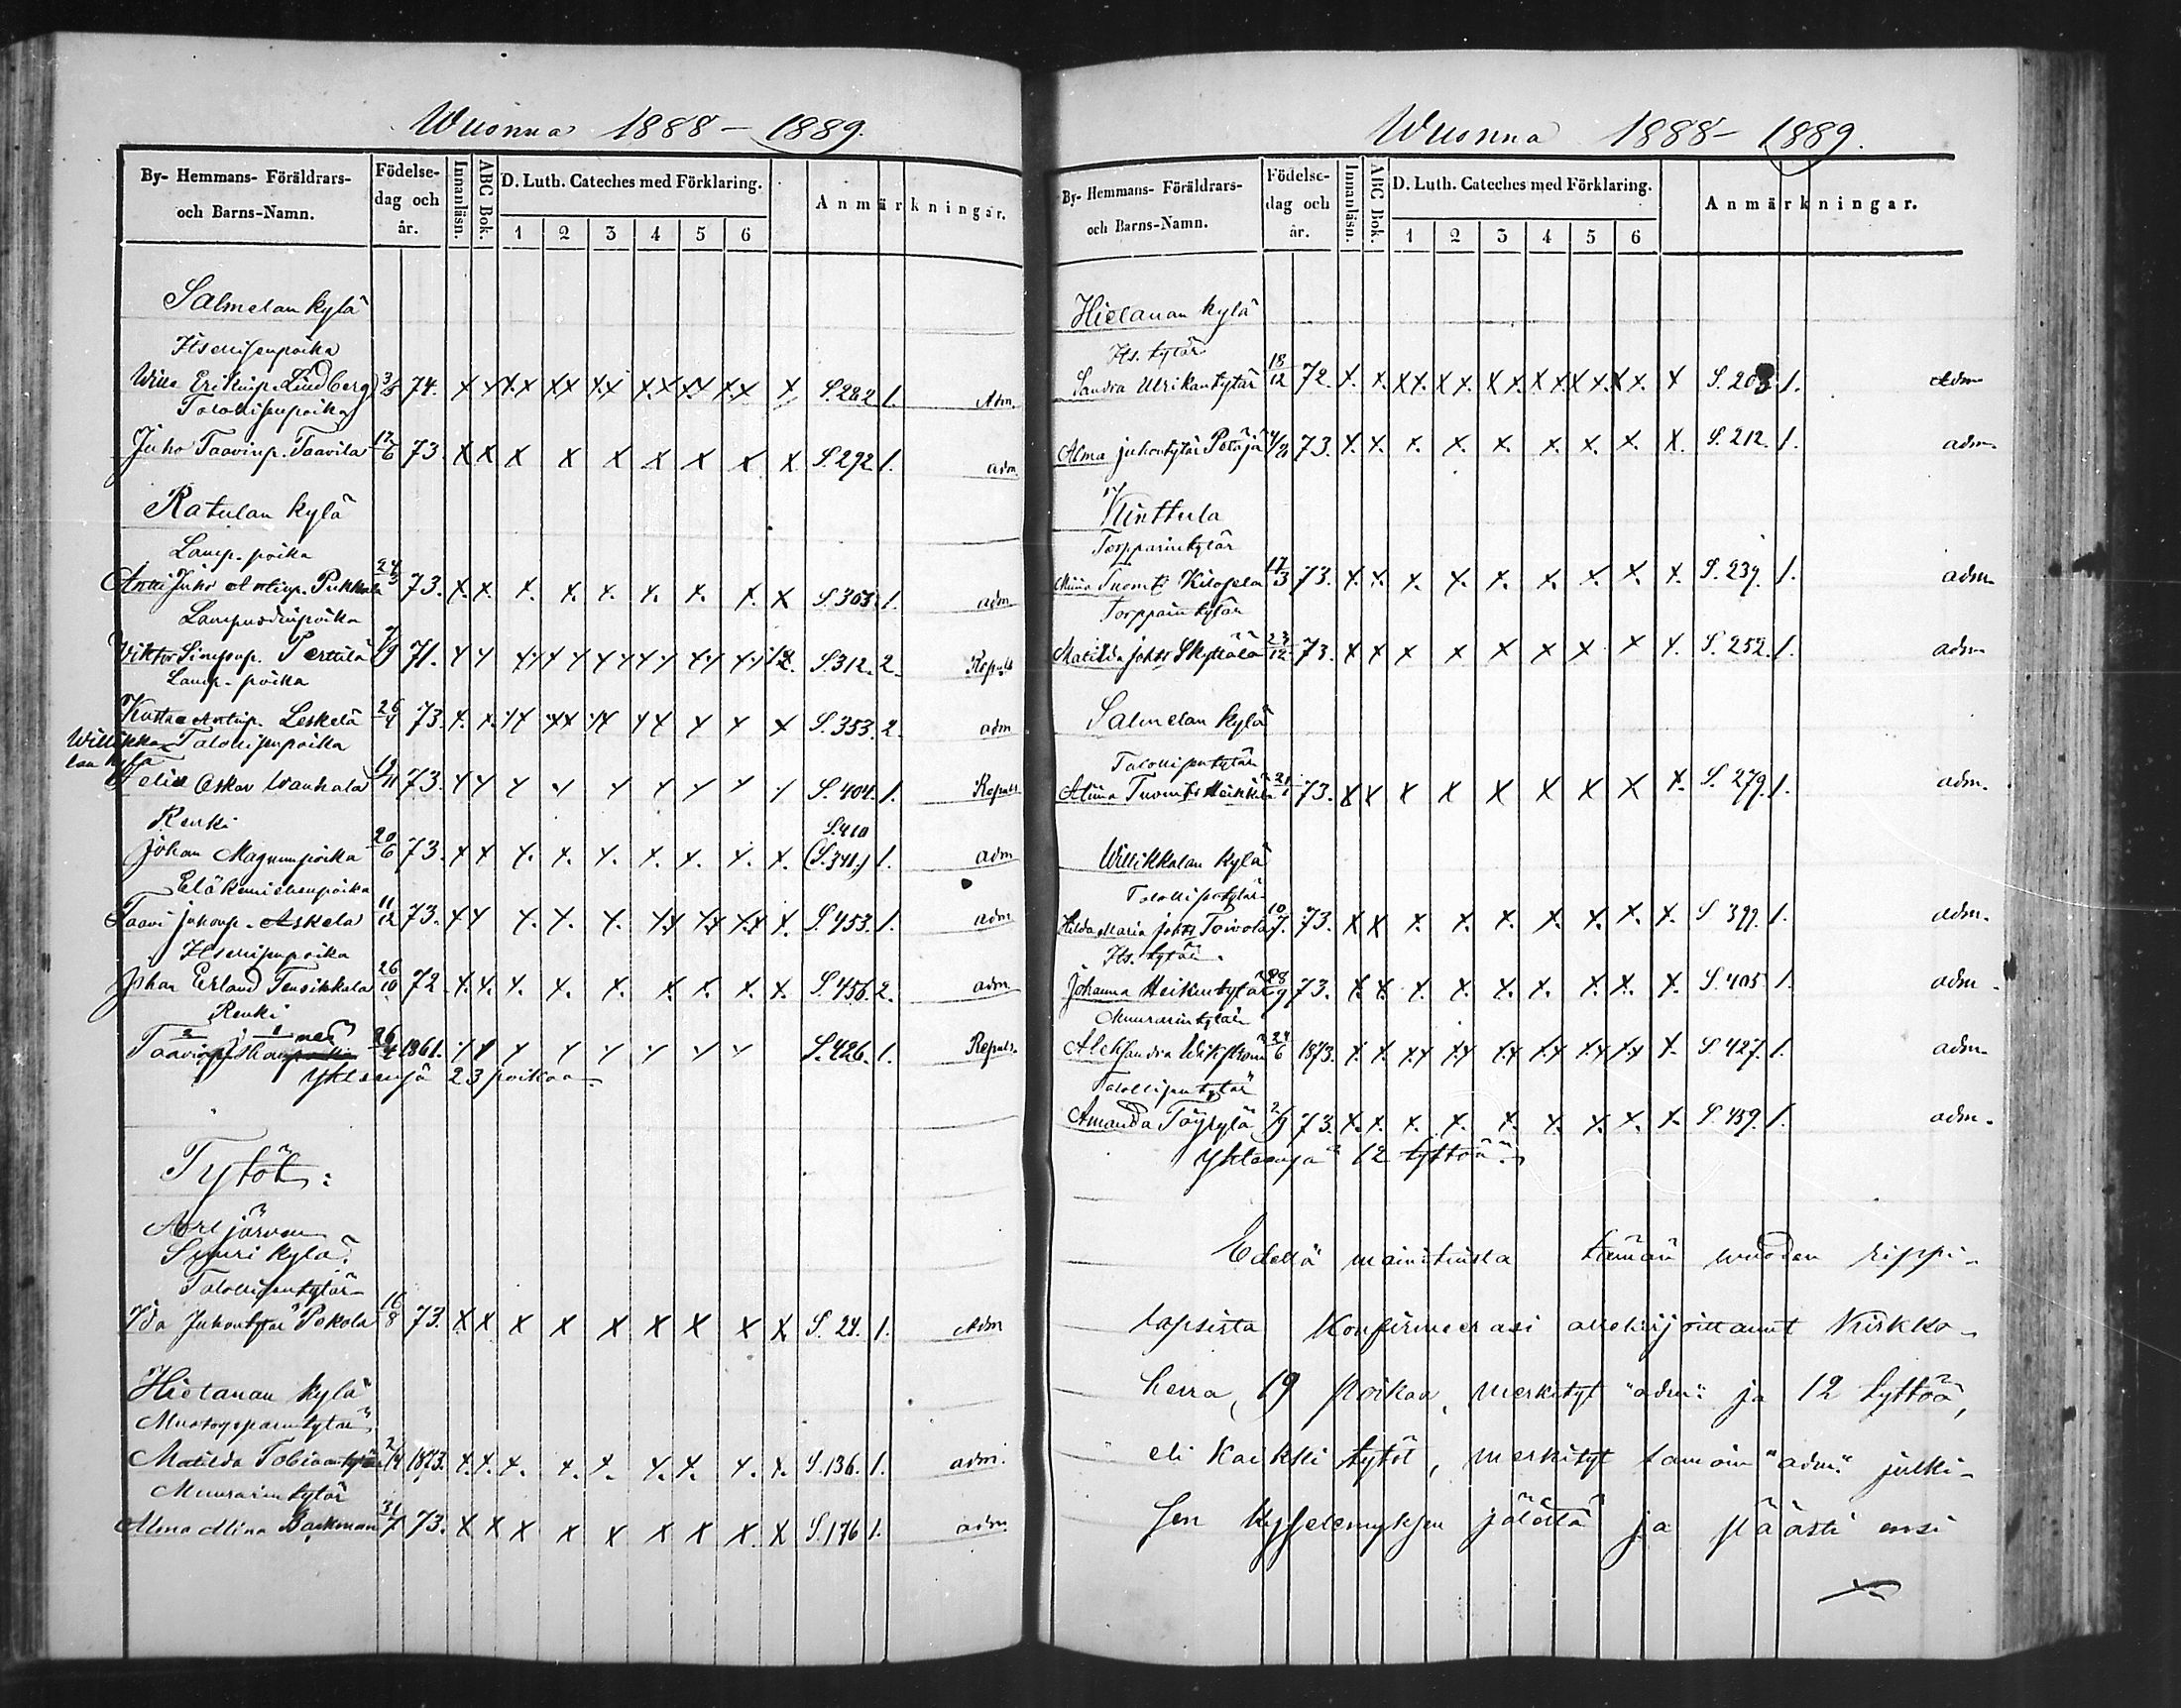 Wuonna 1888 – 1889.
By- Hemmans- Föräldrars- och Barns-Namn.
Födelse- dag och år.
Innanläsn.
ABC Bok.
D. Luth. Cateches med Förklaring.
1 2 3 4 5 6
Anmärkningar.
Salmelan kylä
Itsellisenpoika
Wille Erikinp. Lindberg 3/5 74. x x xx xx xx xx xx xx x S. 282 1. Adm.
Talollisenpoika
Juho Taavinp. Taavila 12/6 73. x x x x x x x x x S. 292 1. adm.
Ratulan kylä
Lamp. poika
Juho Antinp. Pukkala 24/3 73. x. x. x. x. x. x. x. x. x S. 303. 1. adm
Lampuodinpoika
Viktor Simonp. Perttilä 7/9 71. S. 312. 2. Repuls
Lamp. poika
Kustaa Antinp. Leskelä 26/4 73. x. x. xx xx xx xx x x x S. 353. 2. adm
Willikkalan kylä
Talollisenpoika
Felix Oskar Wanhala 19/11 73. x x x x x x x x x S. 404. 1. Repuls.
Renki
S. 410
Johan Magnunpoika 20/6 73. x x x. x. x. x. x. x. x. (S. 341.) 1. adm
Eläkemiehenpoika
Taavi Juhonp. Askela 11/12 73. x x x. x. x. xx xx xx x. S. 453. 1. adm
Itsellisenpoika
Johan Erland Tensikkala 26/10 72 x. x. x. x. x. x. x. x. x. S. 456. 2. adm
Renki
26/4 1861. x x x x x x x x S. 426. 1. Repuls.
Yhteensä 23 poikaa
Tytöt:
Artjärven
Suuri kylä.
Talollisentytär
Ida Juhontytär Pokola 16/8 73. x x x x x x x x x S. 24. 1. Adm
Hietanan kylä
Matilda Tobiaantytär 2/4 1873. x. x. x. x. x. x. x. x. x. S. 136. 1. adm.
Muurarintytär
Alma Mina Backman 31/7 73. x x x x x x x x. x S. 176 1. adm.
Wuonna 1888 – 1889.
By- Hemmans- Föräldrars- och Barns-Namn.
Födelse- dag och år.
Innanläsn.
ABC Bok.
D. Luth. Cateches med Förklaring.
1 2 3 4 5 6
Anmärkningar.
Hietanan kylä
Its. tytär
Sandra Ulrikantytär 18/12 72. x. x. xx xx. xx. xx xx. xx. x S. 208 1. Adm
Alma Juhontytär Petäjä 73. x. x. x. x. x. x. x. x. x. S. 212. 1. adm.
Kinttula
Torpparintytär
Miina Tuom. t. Kilopla 17/3 73. x. x. x. x. x. x. x. x. x. S. 239. 1. adm
Torpparintytär
Matilda Joh. tr Skyttälä 23/12 73. x x x x x x x x x. S. 252. 1. adm
Salmelan kylä
Talollisentytär
Alina Tuom. tr Heikkilä 73. x x x x x x x x x. S. 279. 1. adm.
Willikkalan kylä
Talollisentytär
Hilda Maria Joh. tr Toivola 10/7. 73. x x x. x. x. x. x. x. x. S 399. 1. adm.
Its. tytär.
Johanna Heikintytär 28/9 73. x. x. x. x. x. x. x. x. x. S. 405. 1. adm.
Muurarintytär
Aleksandra Wikström 24/6 1873. x. x. xx xx xx xx xx xx x. S. 427. 1. adm.
Talollisentytär
Amanda Töyrylä 2/9 73. x. x. x. x. x. x. x. x. x. S. 459. 1. adm.
Yhteensä 12 tyttöä.
Edellä mainituista tämän wuoden rippi-
lapsista Konfirmeerasi allekirjoittanut Kirkko-
herra, 19 poikaa, merkityt "adm." ja 12 tyttöä,
eli kaikki tytöt, merkityt samoin "adm." julki-
sen kyselemyksen jälestä ja päästi ensi